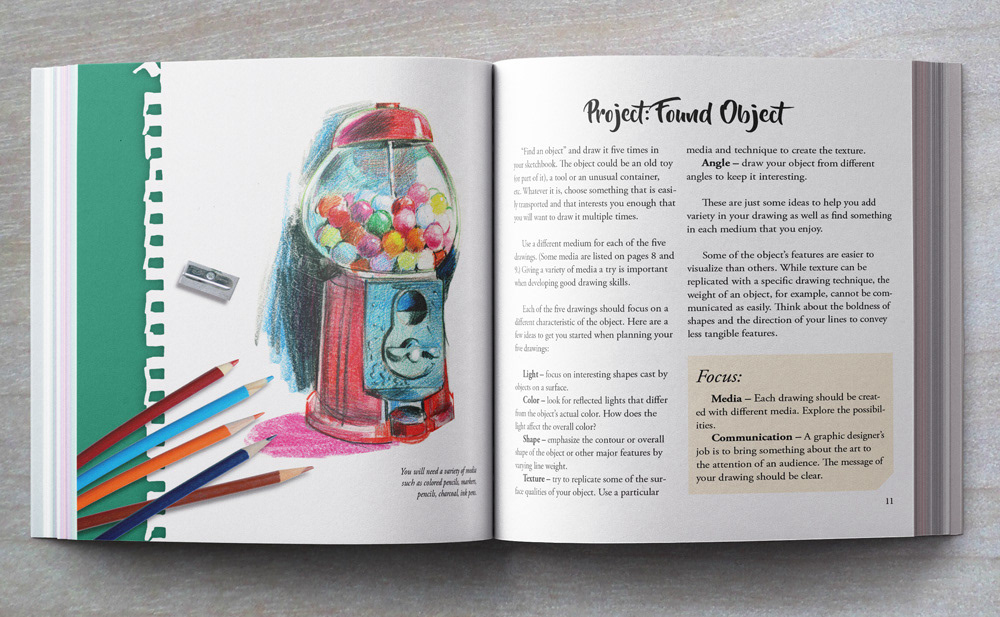 You will need a variety of media
such as colored pencils, markers,
pencils, charcoal, ink pens.
Project: Found Object
"Find an object" and draw it five times in
your sketchbook. The object could be an old toy
(or part of it), a tool or an unusual container,
etc. Whatever it is, choose something that is easi-
ly transported and that interests you enough that
you will want to draw it multiple times.
Use a different medium for each of the five
drawings. (Some media are listed on pages 8 and
9.) Giving a variety of media a try is important
when developing good drawing skills.
Each of the five drawings should focus on a
different characteristic of the object. Here are a
few ideas to get you started when planning your
five drawings:
Light – focus on interesting shapes cast by
objects on a surface.
Color – look for reflected lights that differ
from the object's actual color. How does the
light affect the overall color?
Shape – emphasize the contour or overall
shape of the object or other major features by
varying line weight.
Texture – try to replicate some of the sur-
face qualities of your object. Use a particular
media and technique to create the texture.
Angle – draw your object from different
angles to keep it interesting.
These are just some ideas to help you add
variety in your drawing as well as find something
in each medium that you enjoy.
Some of the object's features are easier to
visualize than others. While texture can be
replicated with a specific drawing technique, the
weight of an object, for example, cannot be com-
municated as easily. Think about the boldness of
shapes and the direction of your lines to convey
less tangible features.
Focus:
Media – Each drawing should be creat-
ed with different media. Explore the possibil-
ities.
Communication – A graphic designer's
job is to bring something about the art to
the attention of an audience. The message of
your drawing should be clear.
11